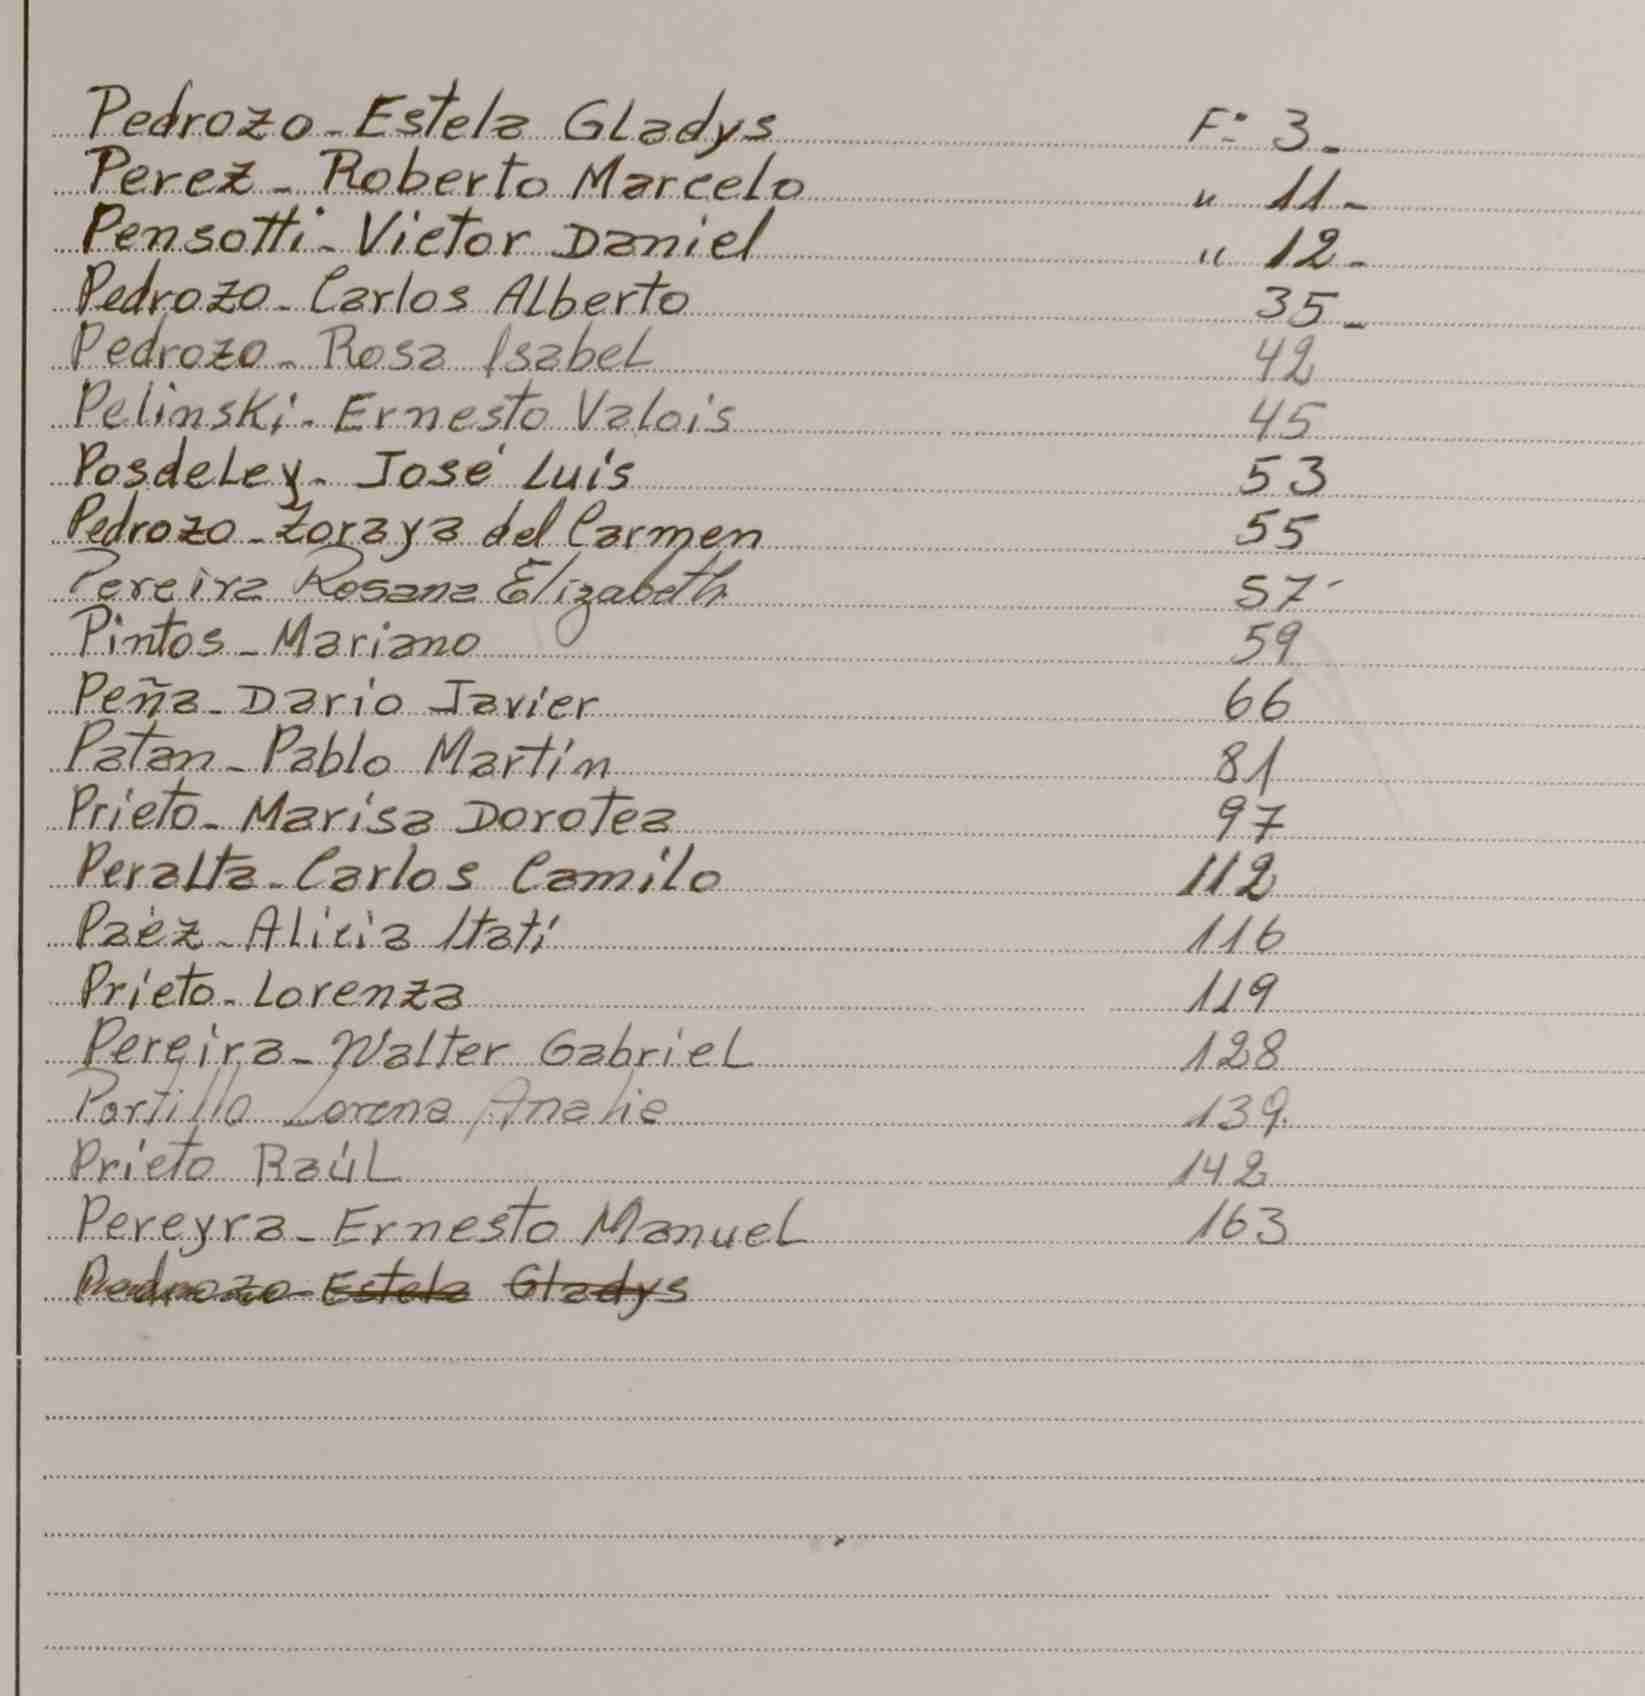 Pedrozo - Estela Gladys F: 3 -
Perez - Roberto Marcelo " 11 -
Pensotti - Victor Daniel " 12 -
Pedrozo - Carlos Alberto 35 -
Pedrozo - Rosa Isabel 42
Pelinski - Ernesto Valois 45
Posdeley - José Luis 53
Pedrozo - Zoraya del Carmen 55
Pereira Rosana Elizabeth 57 -
Pintos - Mariano 59
Peña - Dario Javier 66
Patan - Pablo Martín 81
Prieto - Marisa Dorotea 97
Peralta - Carlos Camilo 112
Paéz - Alicia Itatí 116
Prieto - Lorenza 119
Pereira - Walter Gabriel 128
Portillo Lorena Analie 139.
Prieto Raúl 142
Pereyra - Ernesto Manuel 163
Pedrozo - Estela Gladys